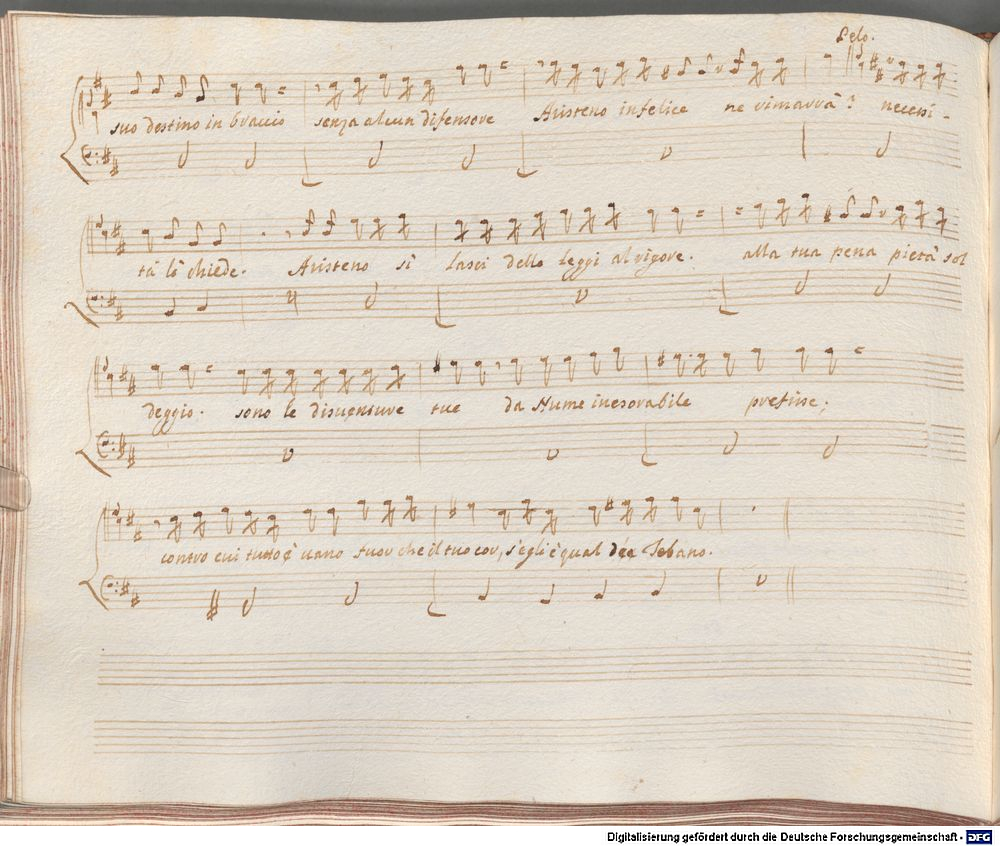 Pelo.
suo destino in braccio senza alcun difensore Aristeno infelice ne rimarrà? necessi-
tà lo chiede. Aristeno si lasci delle leggi al rigore. alla tua pena pietà sol
deggio. sono le disuenture tue da Nume inesorabile prefisse;
contro cui tutto è uano fuor che il tuo cor, s'egli è qual dée Tebano.
Digitalisierung gefördert durch die Deutsche Forschungsgemeinschaft - DFG